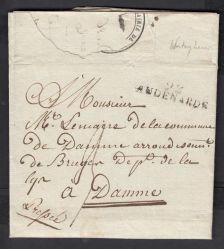 MAIRIE DE
92
AUDENARDE
A Monsieur
Mr. Lemaire de la commune
de Damme arrondissemt.
de Bruges Dept. de la
Lys
à Damme